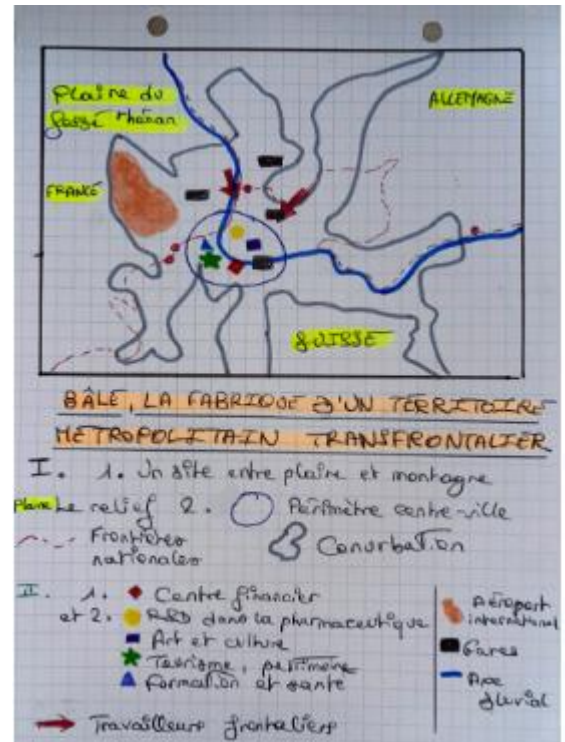 Plaine du
fossé rhénan
ALLEMAGNE
FRANCE
SUISSE
BÂLE, LA FABRIQUE D'UN TERRITOIRE
METROPOLITAIN TRANSFRONTALIER
I. 1. Un site entre plaine et montagne
Plaine Le relief 2. Périmètre centre-ville
Frontières
nationales
Conurbation
II. 1.
et 2.
Centre financier
R&D dans la pharmaceutique
Art et culture
Tourisme, patrimoine
Formation et santé
Travailleurs frontaliers
Aéroport
international
Gares
Axe
fluvial